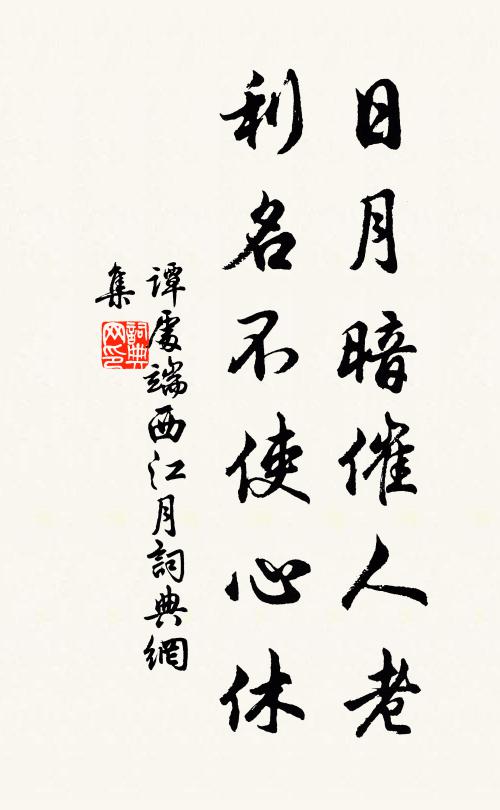 日月暗催人老
利名不使心休
譚處端西江月詞典網
集
詞典
网印